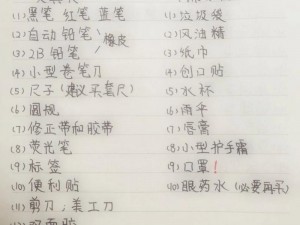 (1) 黑笔 红笔 蓝笔
(2) 自动铅笔
(3) 2B 铅笔 / 橡皮
(4) 小型卷笔刀
(5) 尺子 (建议买套尺)
(6) 圆规
(7) 修正带和胶带
(8) 荧光笔
(9) 标签
(10) 便利贴
(11) 剪刀、美工刀
(1) 垃圾袋
(2) 风油精
(3) 纸巾
(4) 创口贴
(5) 水杯
(6) 雨伞
(7) 唇膏
(8) 小型护手霜
(9) 口罩!
(10) 眼药水 (必要再买)